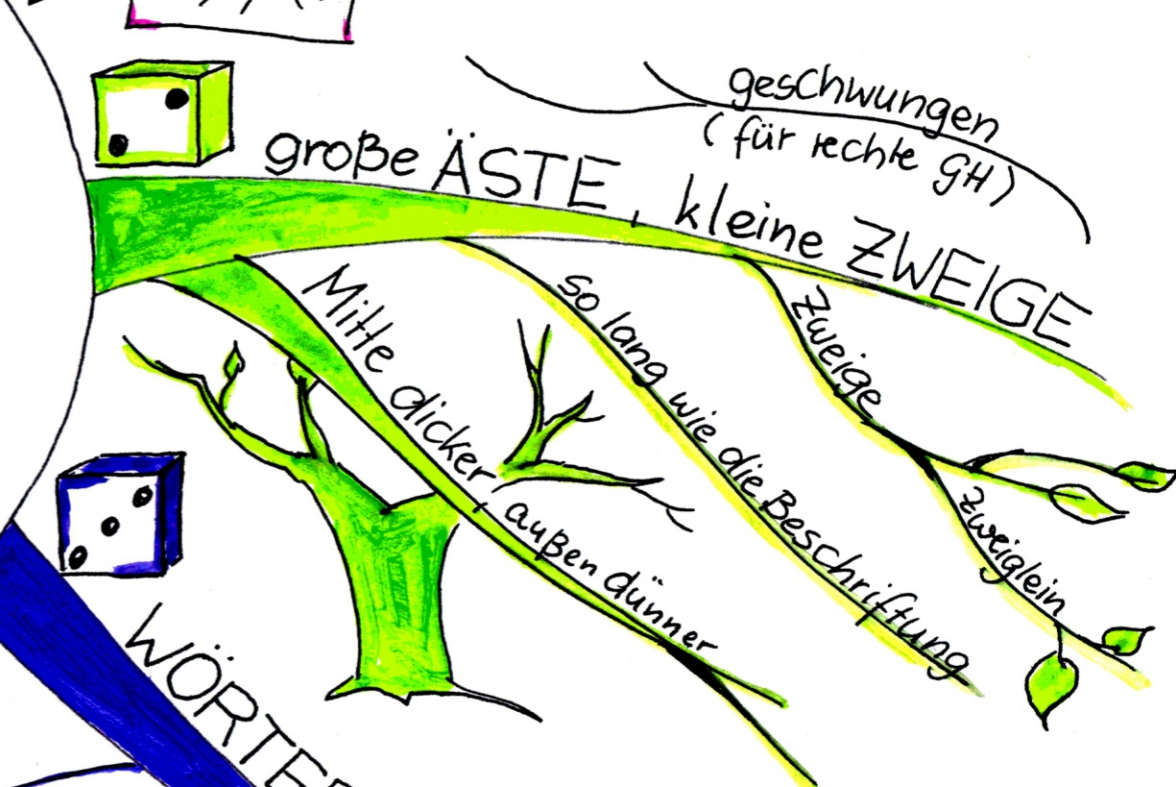 geschwungen
(für rechte GH)
große ÄSTE, kleine ZWEIGE
Mitte dicker, außen dünner
so lang wie die Beschriftung
Zweige
Zweiglein